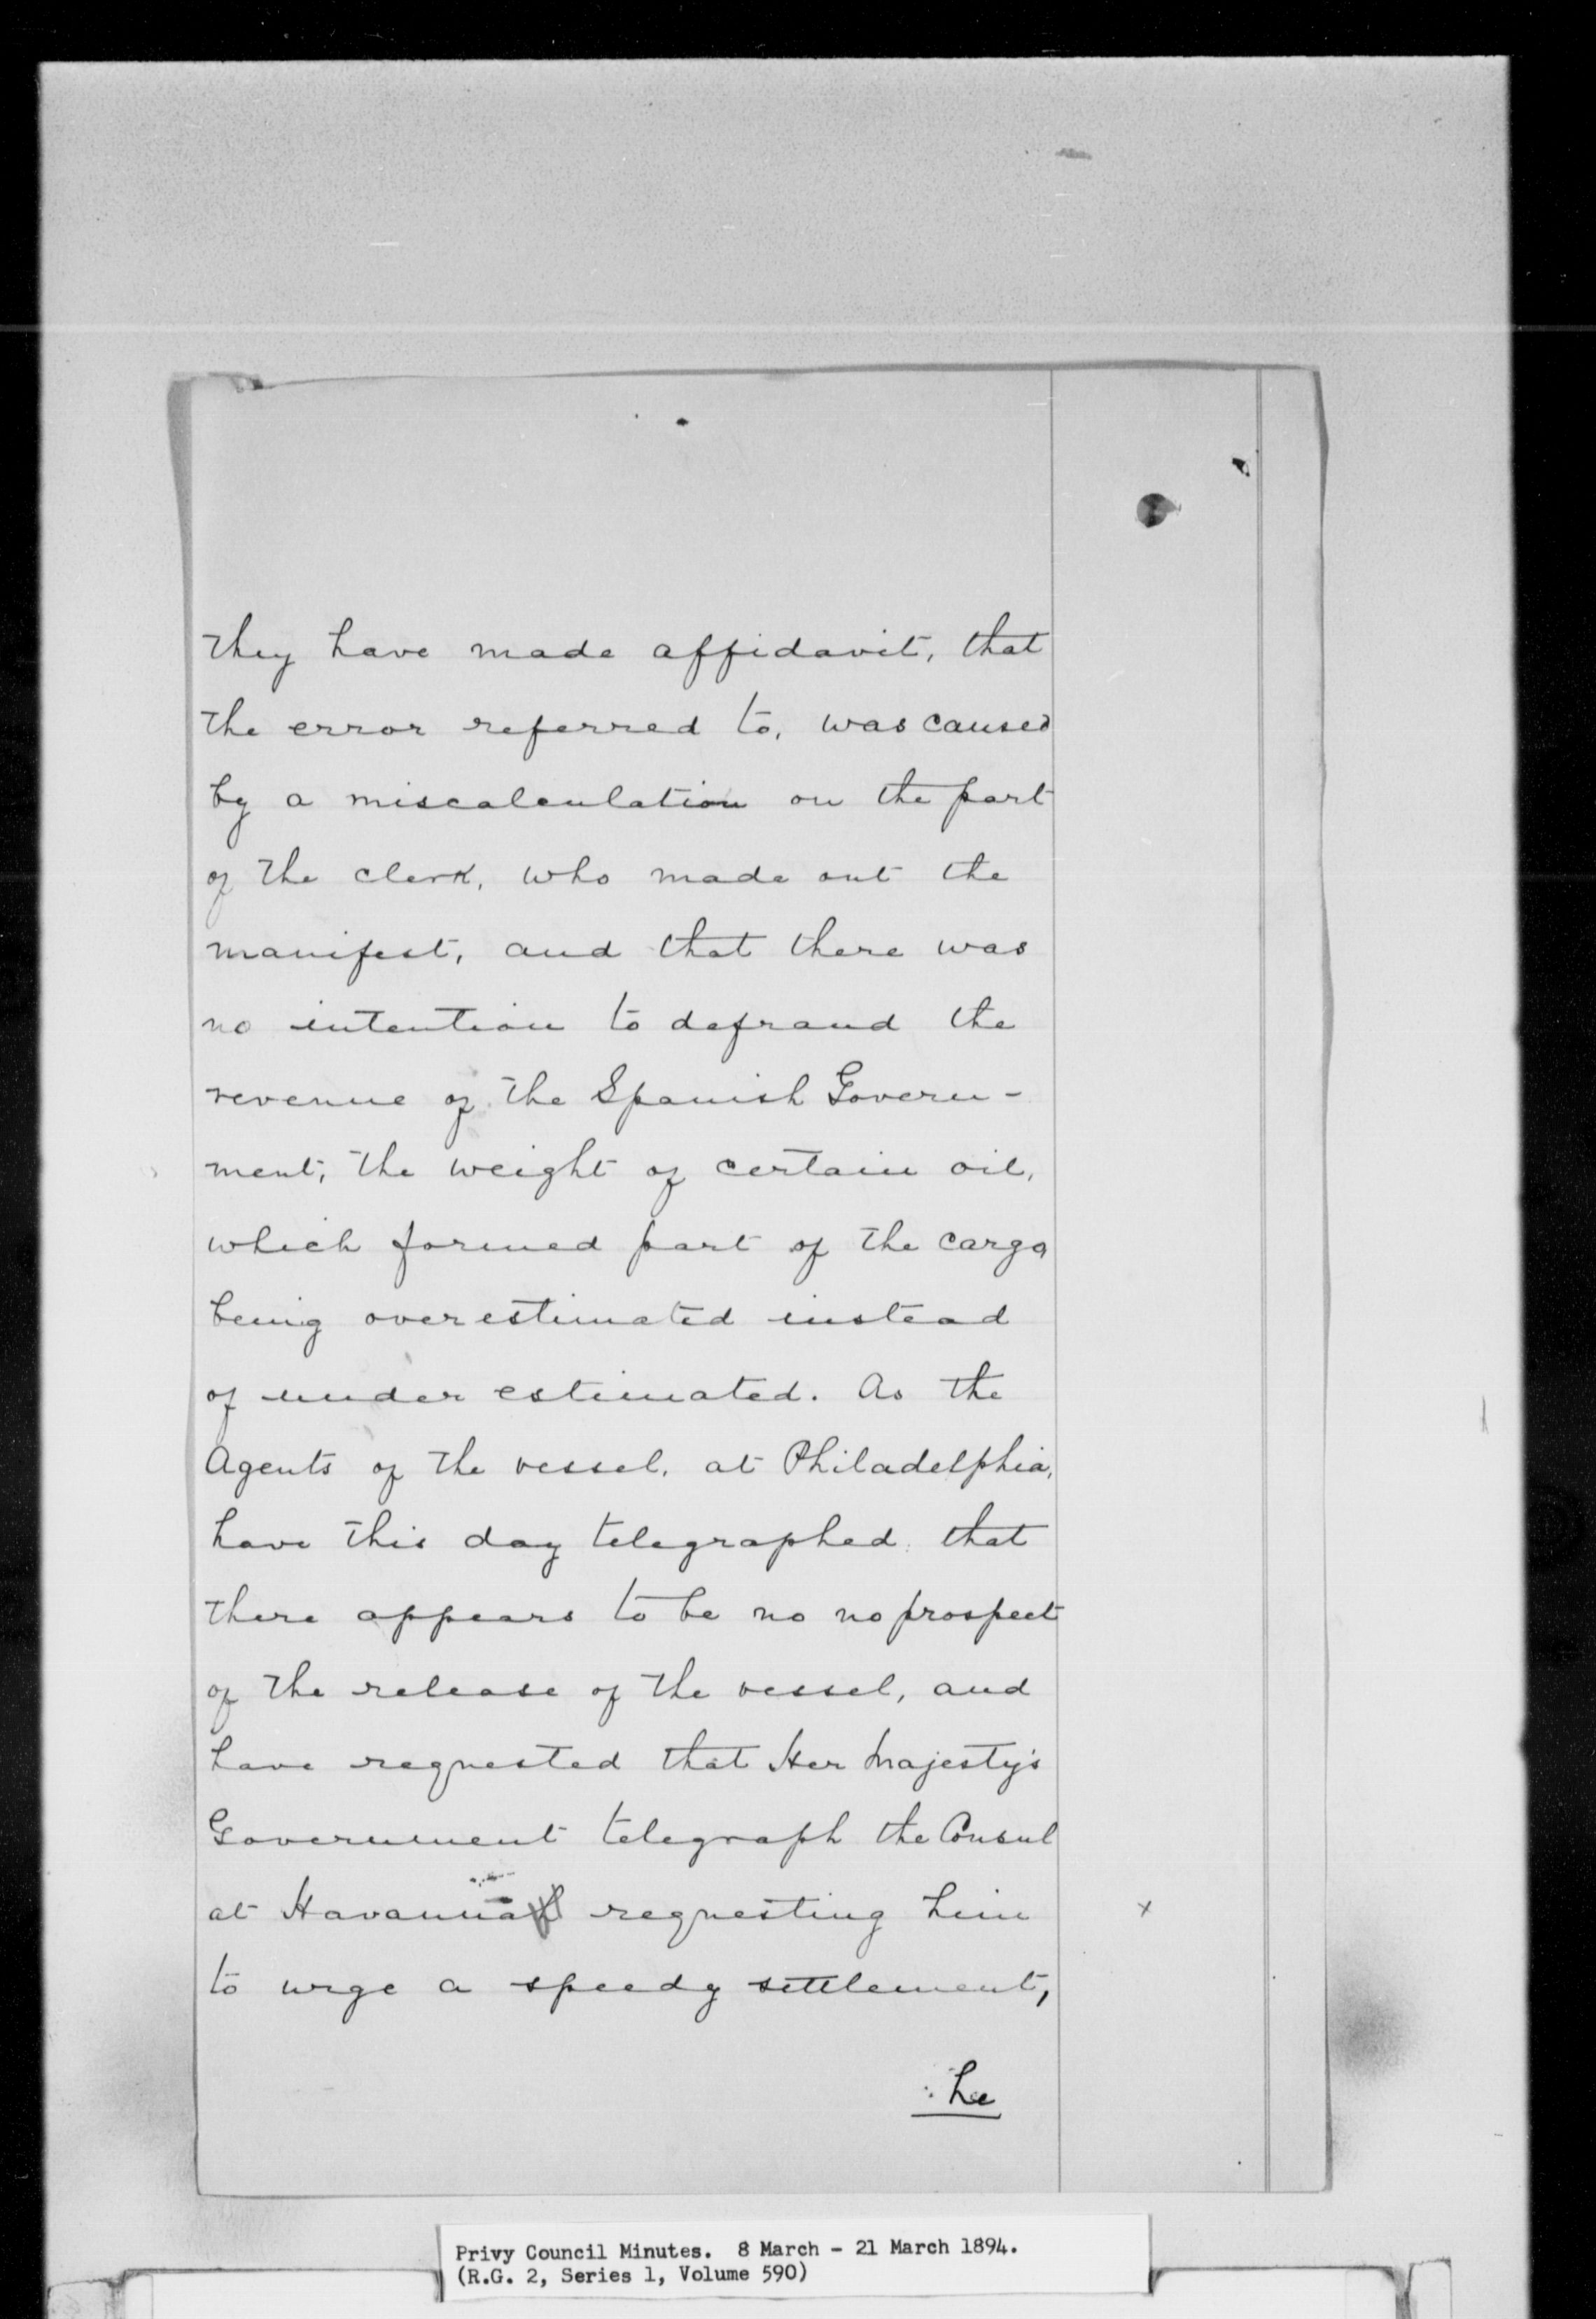 they have made affidavit, that
the error referred to, was caused
by a miscalculation on the part
of the clerk, who made out the
manifest, and that there was
no intention to defraud the
revenue of the Spanish Govern-
ment, the weight of certain oil,
which formed part of the cargo
being overestimated instead
of under estimated. As the
Agents of the vessel, at Philadelphia,
have this day telegraphed that
there appears to be no no prospect
of the release of the vessel, and
have requested that Her Majesty's
Government telegraph the Consul
at Havanna requesting him
x
to urge a speedy settlement,
he
Privy Council Minutes. 8 March - 21 March 1894.
(R.G. 2, Series 1, Volume 590)